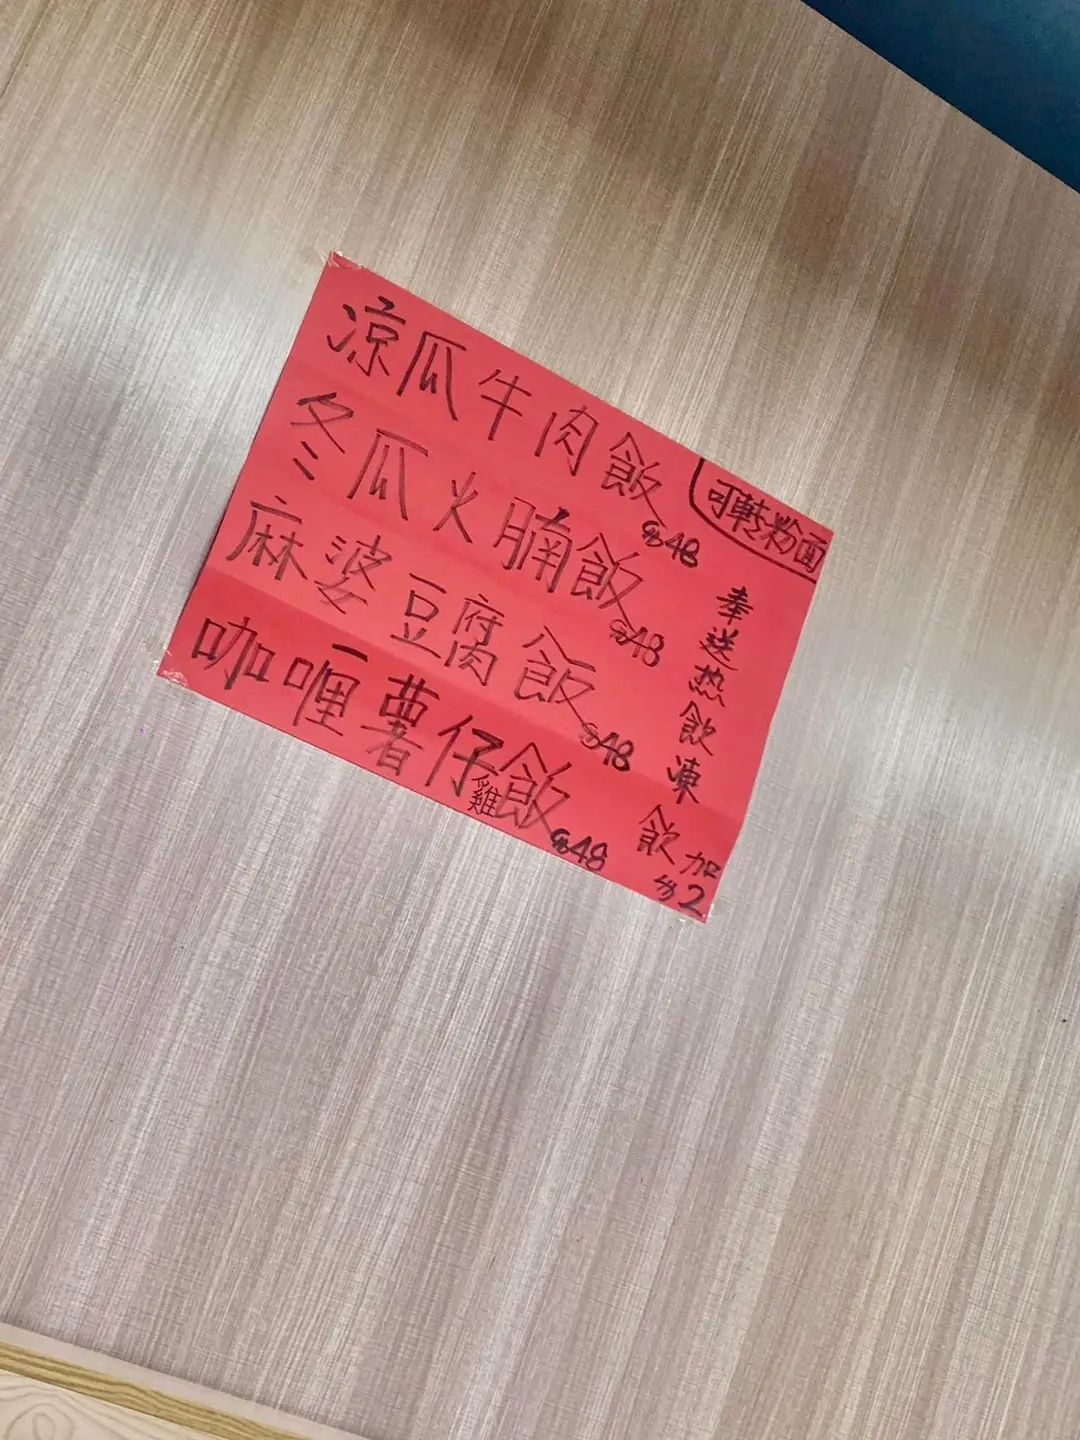 凉瓜牛肉飯 $48
冬瓜火腩飯 $48
麻婆豆腐飯 $48
咖喱薯仔雞飯 $48
可轉粉面
奉送热飲凍飲加$2